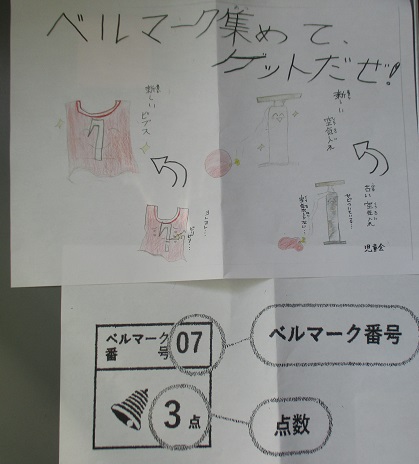 ベルマーク集めて、
ゲットだぜ!
新しい
ビブス
7
新しい
空気入れ
古い空気入れ
児童会
ベルマーク
番号
07
ベルマーク番号
3点
点数